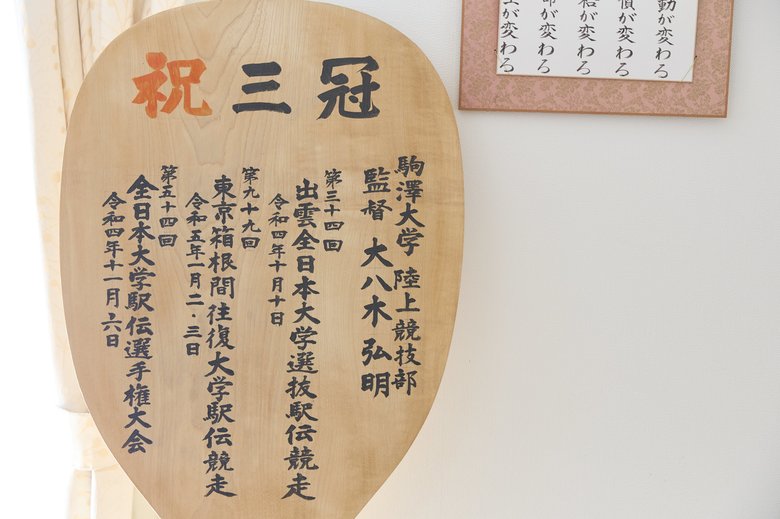 祝三冠
駒澤大学 陸上競技部
監督 大八木弘明
第三十四回
出雲全日本大学選抜駅伝競走
令和四年十月十日
第九十九回
東京箱根間往復大学駅伝競走
令和五年一月二・三日
第五十四回
全日本大学駅伝選手権大会
令和四年十一月六日
動が変わる
慣が変わる
格が変わる
命が変わる
が変わる